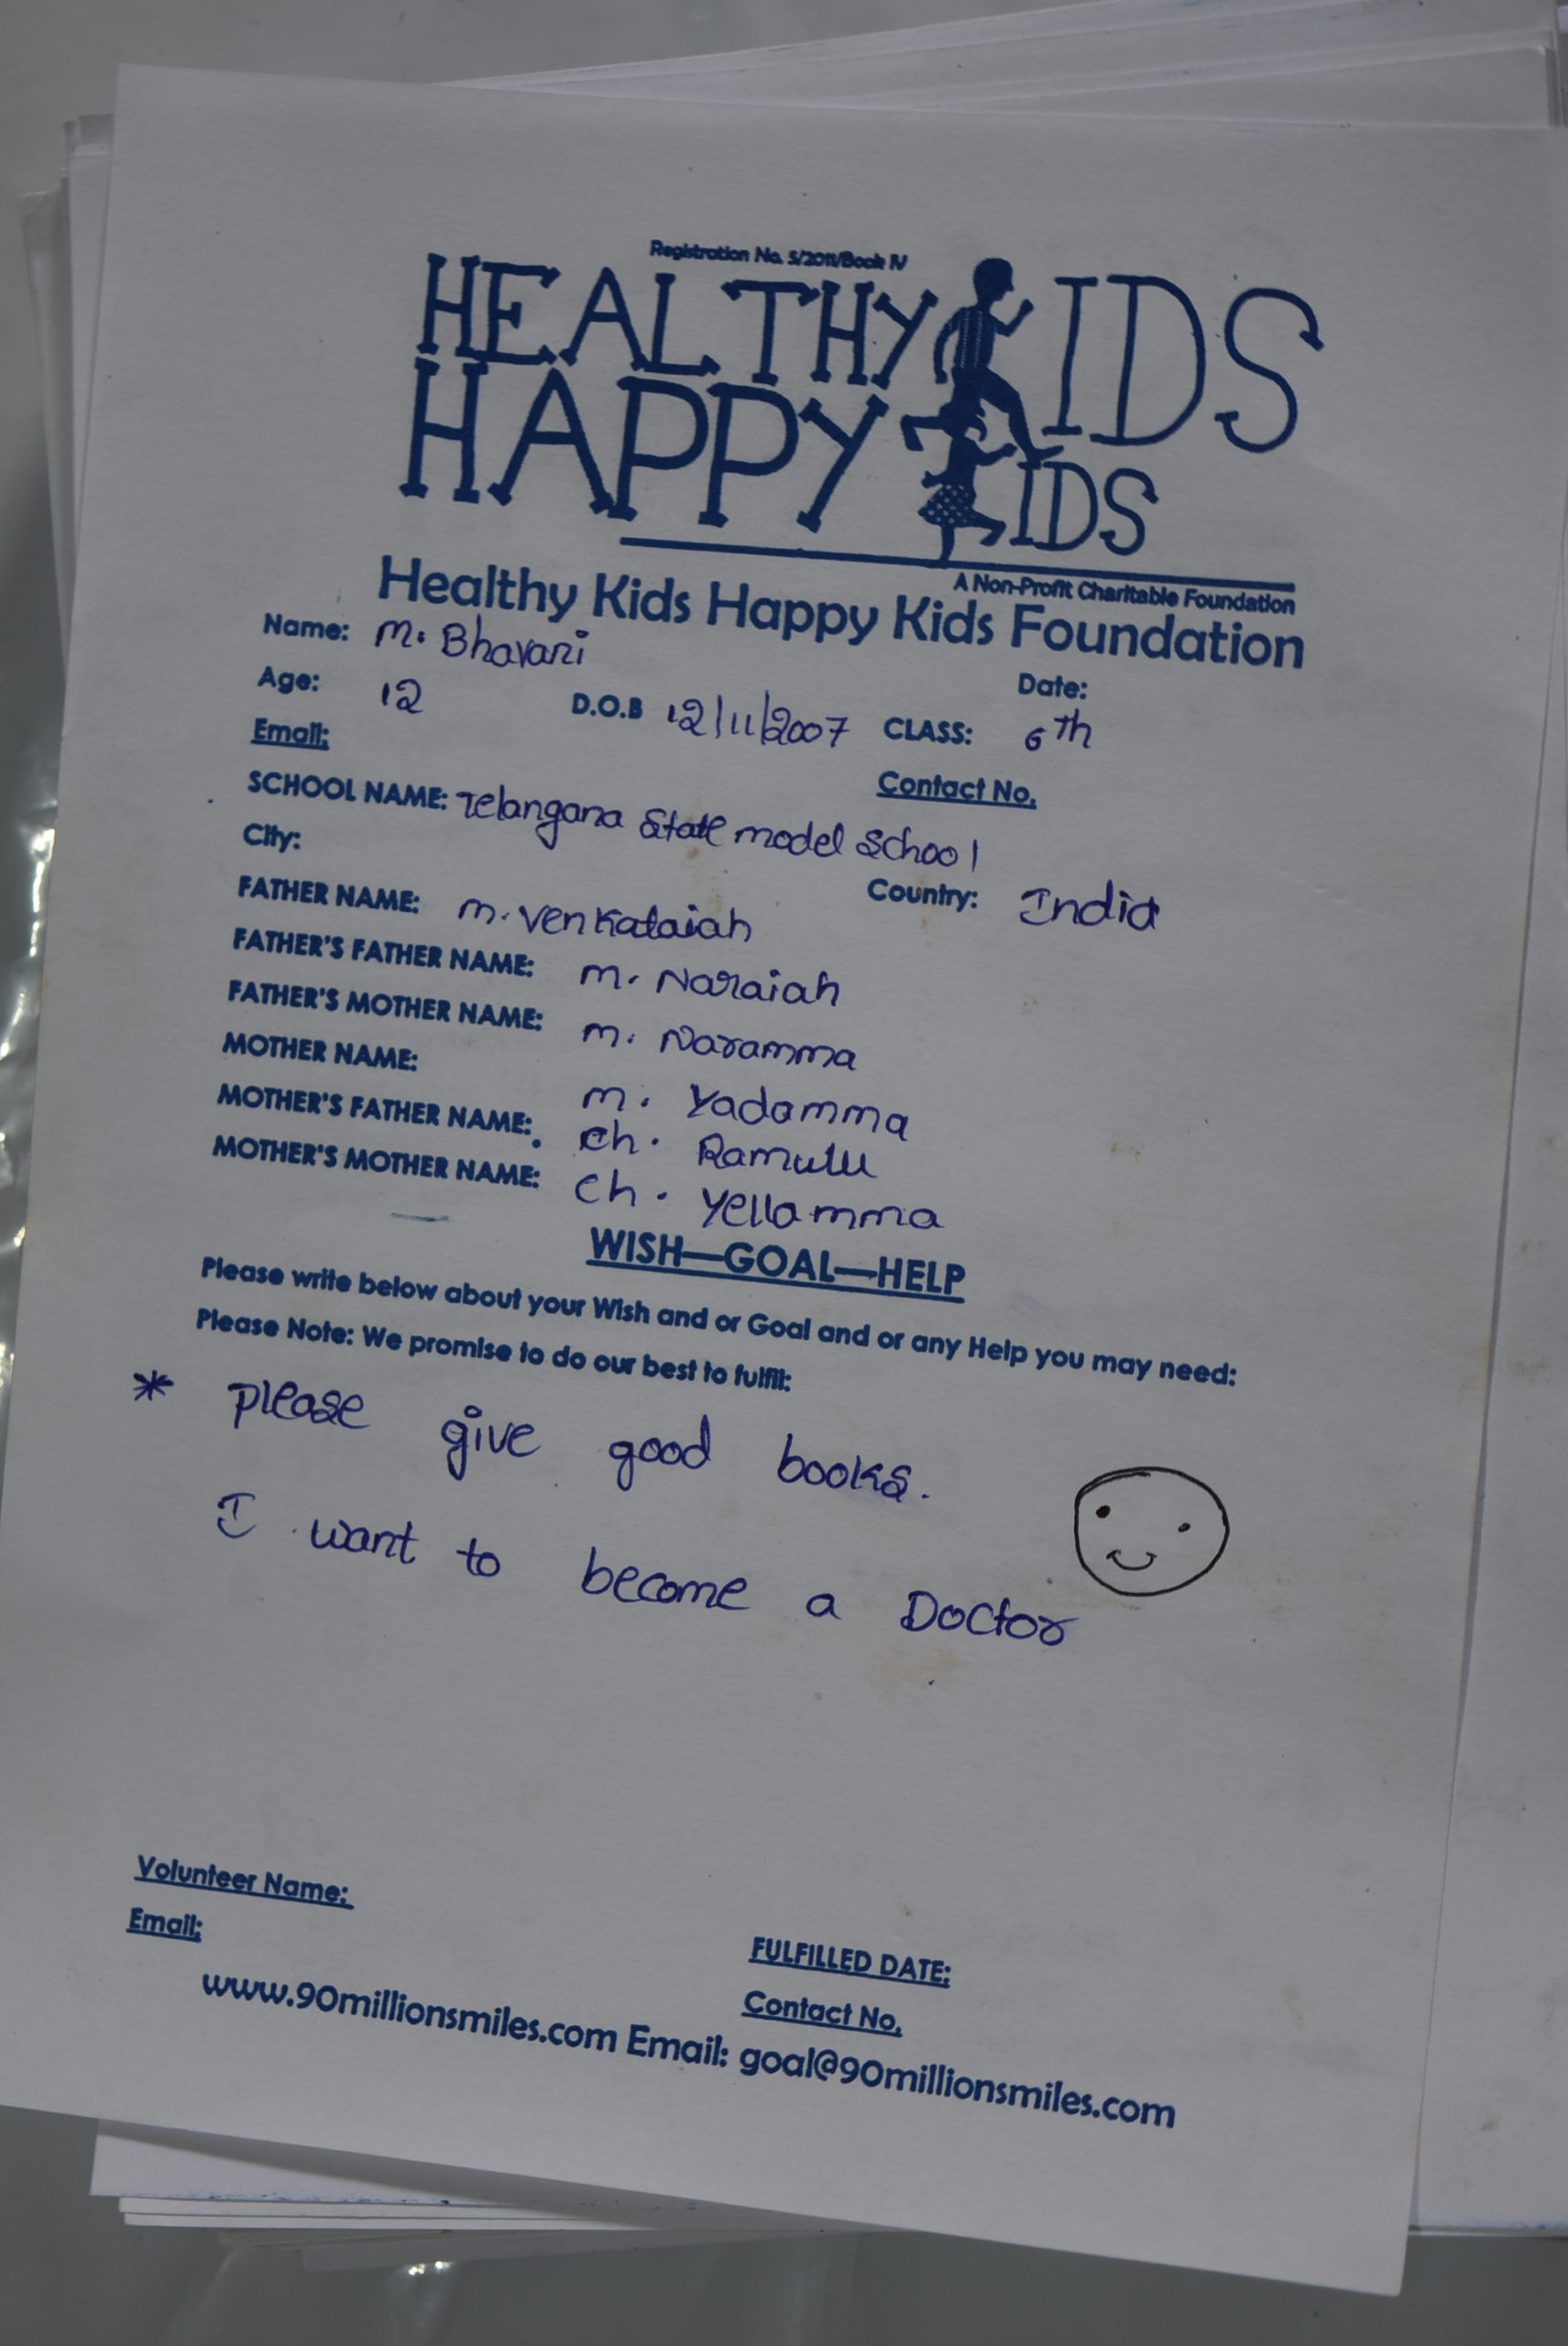 Registration No. 5/2011/Book IV
HEALTHY KIDS
HAPPY KIDS
A Non-Profit Charitable Foundation
Healthy Kids Happy Kids Foundation
Name: M. Bhavani
Date:
Age: 12 D.O.B 12/11/2007 CLASS: 6th
Email:
Contact No.
SCHOOL NAME: Telangana State model School
City:
Country: India
FATHER NAME: M. Venkataiah
FATHER'S FATHER NAME: M. Naraiah
FATHER'S MOTHER NAME: M. Naramma
MOTHER NAME: M. Yadamma
MOTHER'S FATHER NAME: Ch. Ramulu
MOTHER'S MOTHER NAME: Ch. Yellamma
WISH—GOAL—HELP
Please write below about your Wish and or Goal and or any Help you may need:
Please Note: We promise to do our best to fulfil:
* please give good books.
I want to become a Doctor
Volunteer Name:
Email:
FULFILLED DATE:
Contact No.
www.90millionsmiles.com Email: goal@90millionsmiles.com